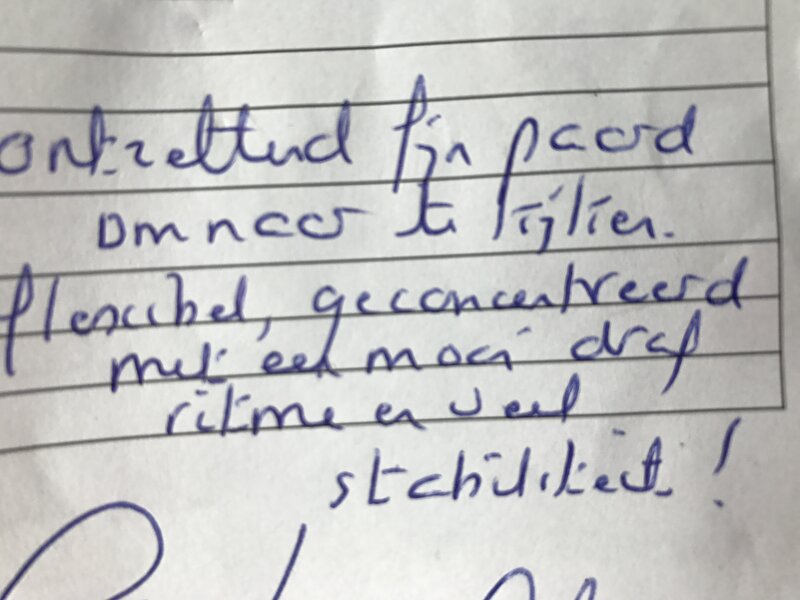 ontzettend fijn paard
om naar te kijken.
flexibel, geconcentreerd
met een mooi draf
ritme en veel
stabiliteit!